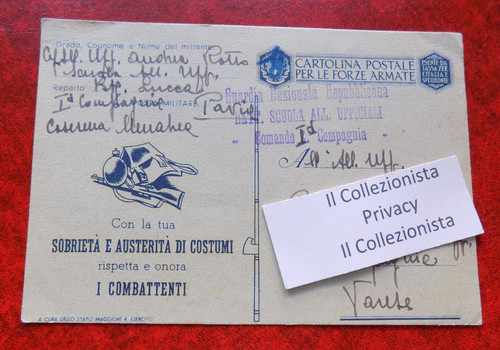 Grado, Cognome e Nome del mittente
All. Uff. Andrea
Scuola All. Uff.
Reparto
Lucca
Iª Compagnia MILITARE Pavia
Caserma Menabrea
CARTOLINA POSTALE
PER LE FORZE ARMATE
ESENTE DA
TASSA PER
L'ITALIA E
Guardia Nazionale Repubblicana
BATT. SCUOLA ALL. UFFICIALI
- Comando Iª Compagnia -
All' All. Uff.
Il Collezionista
Privacy
Il Collezionista
Varese
Con la tua
SOBRIETÀ E AUSTERITÀ DI COSTUMI
rispetta e onora
I COMBATTENTI
A CURA DELLO STATO MAGGIORE R. ESERCITO